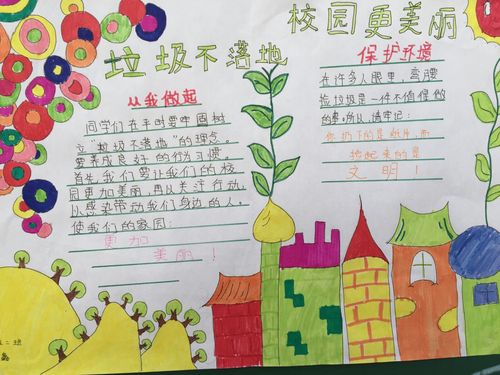 垃圾不落地
校园更美丽
从我做起
同学们在平时要牢固树
立"垃圾不落地"的理念。
要养成良好的行为习惯。
首先,我们要让我们的校
园更加美丽,再从关注行动,
以感染带动我们身边的人。
使我们的家园:
更加
美丽!
保护环境
在许多人眼里,弯腰
捡垃圾是一件不值得做
的事,所以,请牢记:
你扔下的是纸片,而
捡起来的是
文明!
二班